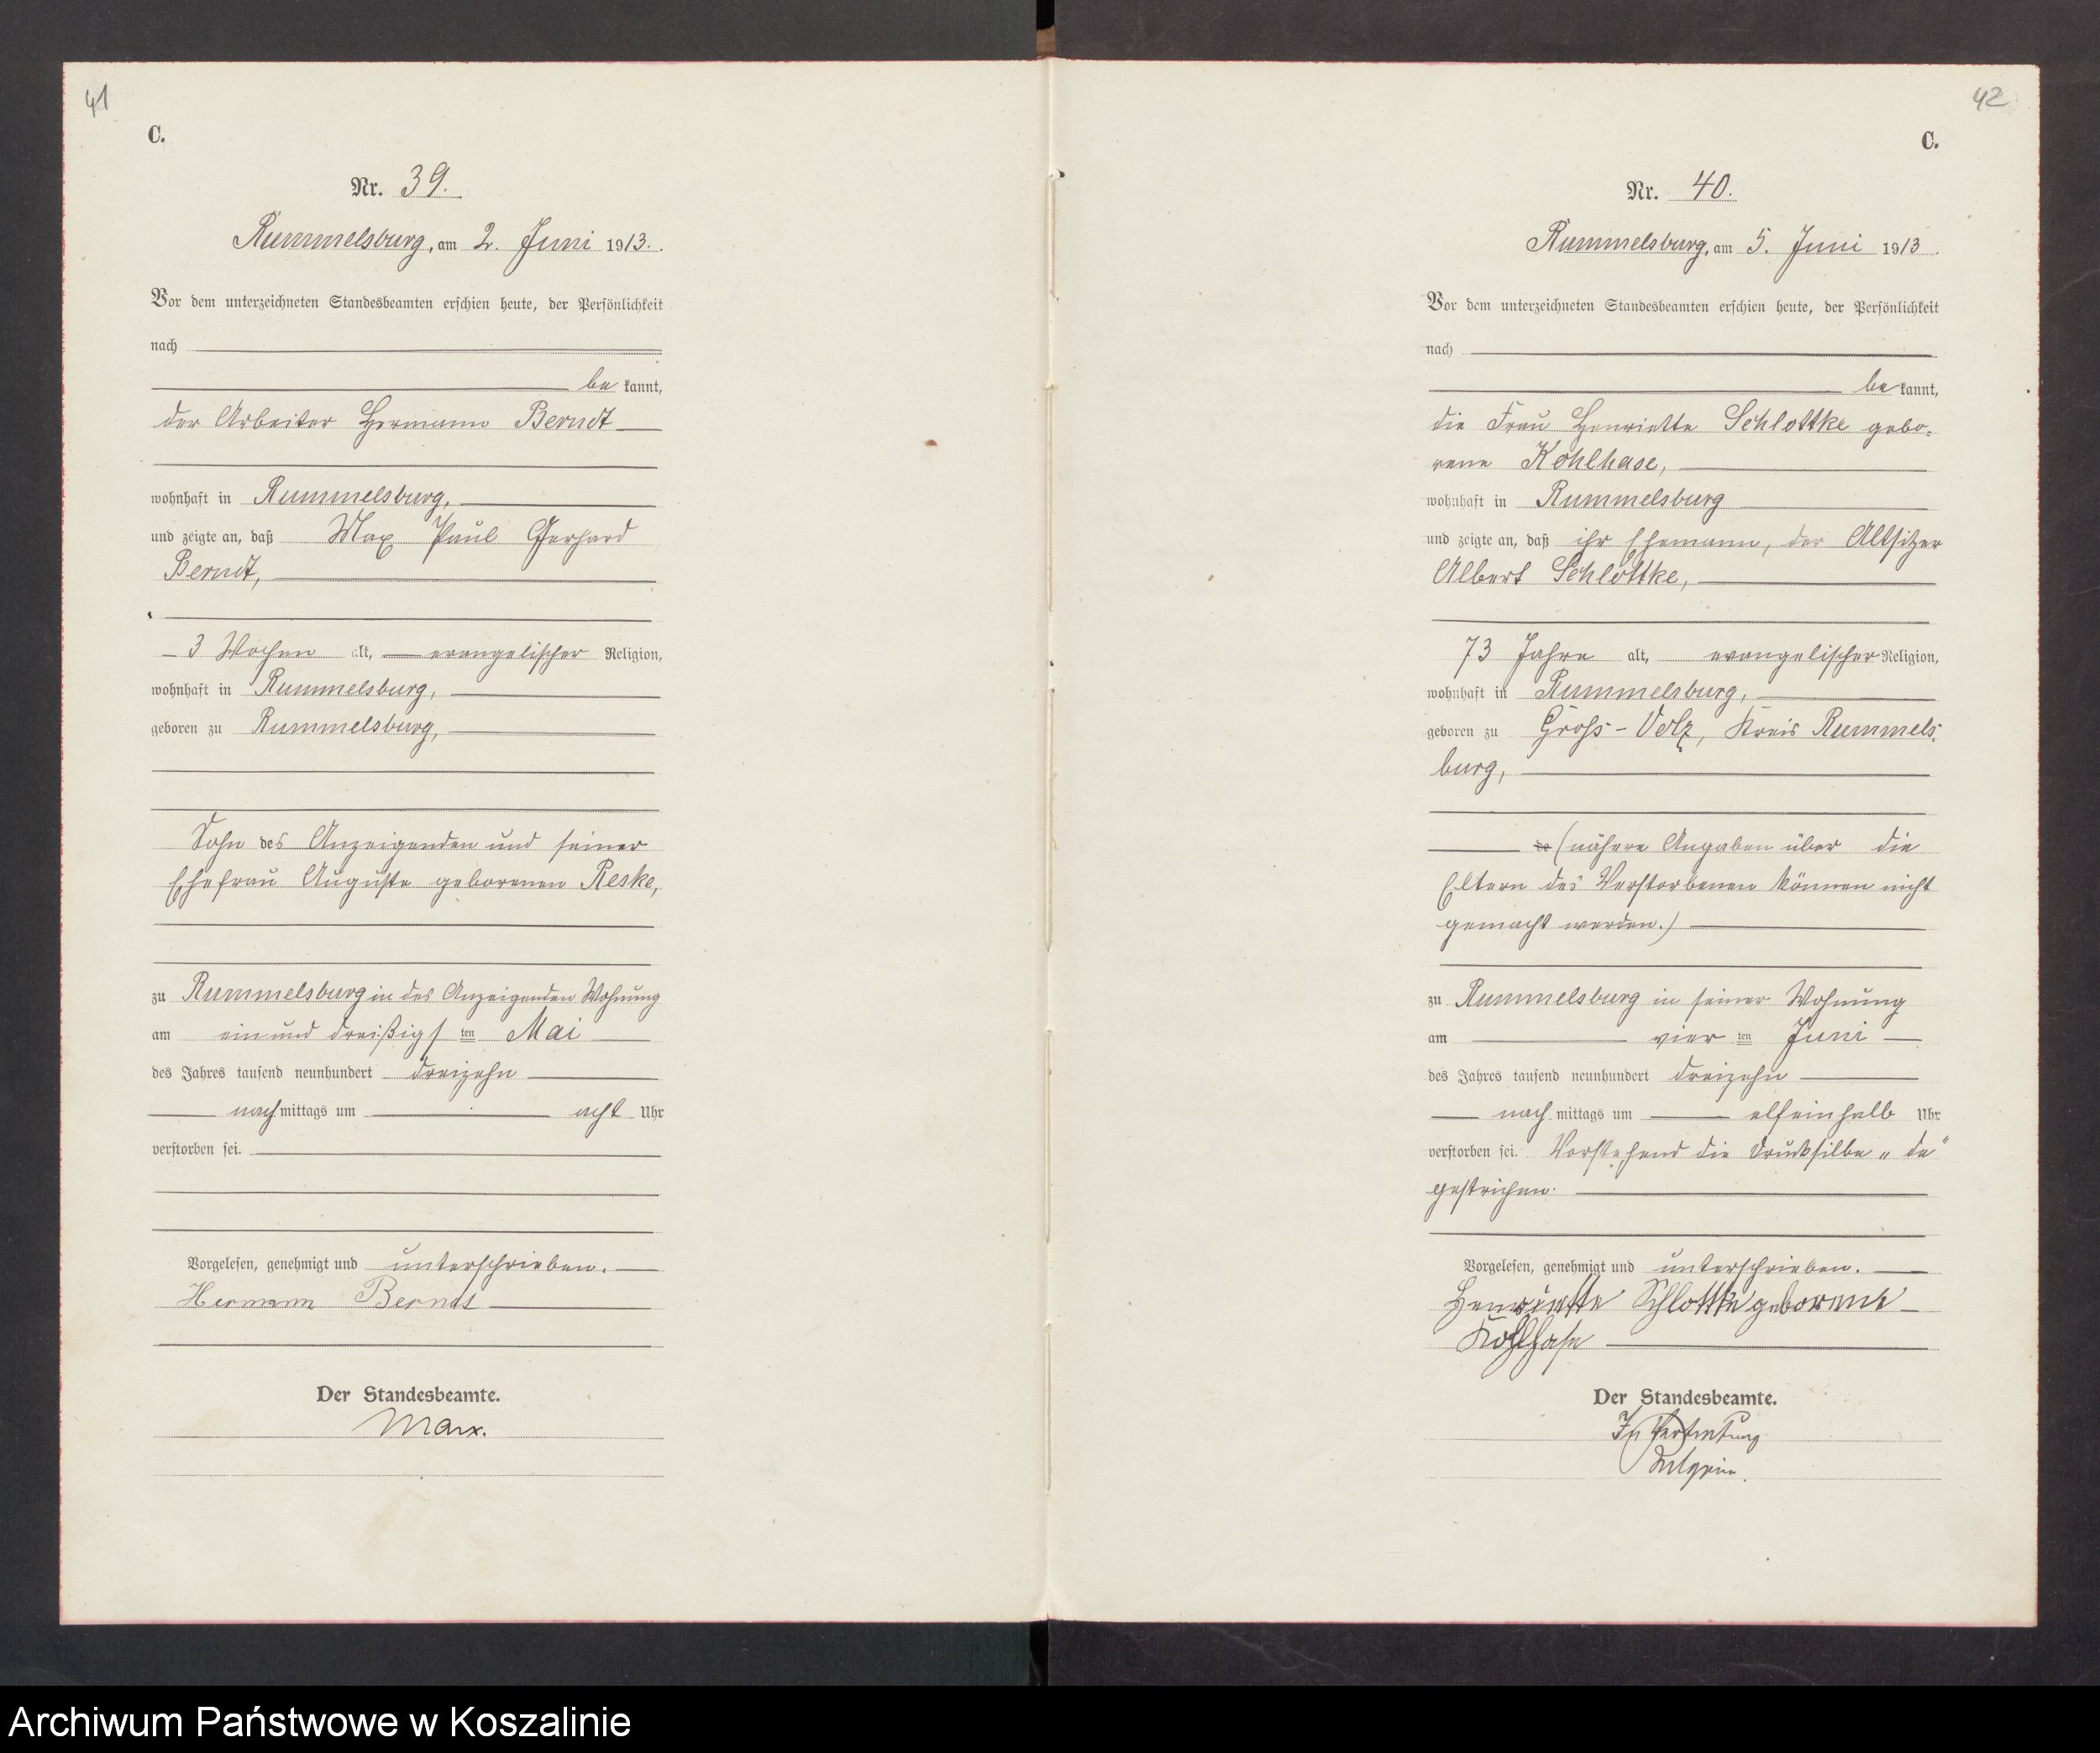 41
C.
Nr. 39.
Rummelsburg, am 2. Juni 1913.
Vor dem unterzeichneten Standesbeamten erschien heute, der Persönlichkeit
nach
be kannt,
der Arbeiter Hermann Berndt
wohnhaft in Rummelsburg,
und zeigte an, daß Max Paul Gerhard
Berndt,
3 Wochen alt, evangelischer Religion,
wohnhaft in Rummelsburg,
geboren zu Rummelsburg,
Sohn des Anzeigenden und seiner
Ehefrau Auguste geborenen Reske,
zu Rummelsburg in des Anzeigenden Wohnung
am ein und dreißigsten Mai
des Jahres tausend neunhundert dreizehn
nachmittags um acht Uhr
verstorben sei.
Vorgelesen, genehmigt und unterschrieben.
Hermann Berndt
Der Standesbeamte.
Marx.
42
C.
Nr. 40.
Rummelsburg, am 5. Juni 1913.
Vor dem unterzeichneten Standesbeamten erschien heute, der Persönlichkeit
nach
be kannt,
die Frau Henriette Schlottke gebo-
rene Kohlhase,
wohnhaft in Rummelsburg
und zeigte an, daß ihr Ehemann, der Altsitzer
Albert Schlottke,
73 Jahre alt, evangelischer Religion,
wohnhaft in Rummelsburg,
geboren zu Gross-Volz, Kreis Rummels-
burg,
de (nähere Angaben über die
Eltern des Verstorbenen können nicht
gemacht werden.)
zu Rummelsburg in seiner Wohnung
am vierten Juni
des Jahres tausend neunhundert dreizehn
nachmittags um elfeinhalb Uhr
verstorben sei. Vorstehend die Drucksilbe „de"
gestrichen.
Vorgelesen, genehmigt und unterschrieben.
Henriette Schlottke geborene
Kohlhase
Der Standesbeamte.
In Vertretung
Archiwum Państwowe w Koszalinie